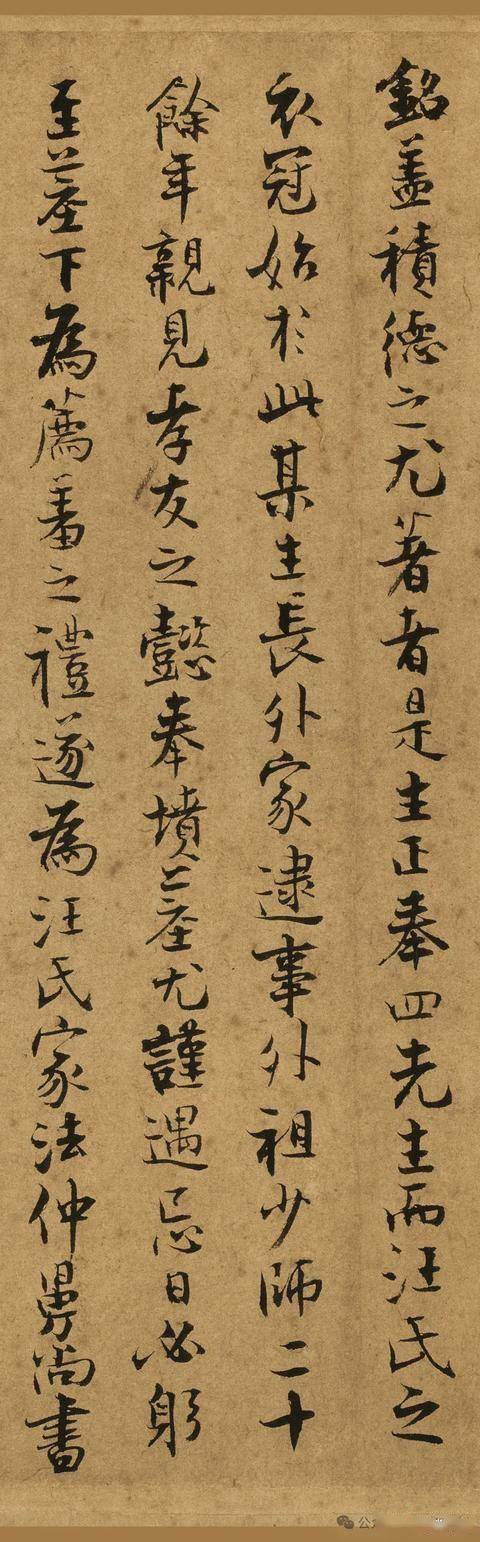 銘蓋積德之尤著者是生正奉四先生而汪氏之
衣冠始於此某生長外家逮事外祖少師二十
餘年親見孝友之懿奉墳墓尤謹遇忌日必躬
至墓下為薦羞之禮遂為汪氏家法仲舅尚書
公